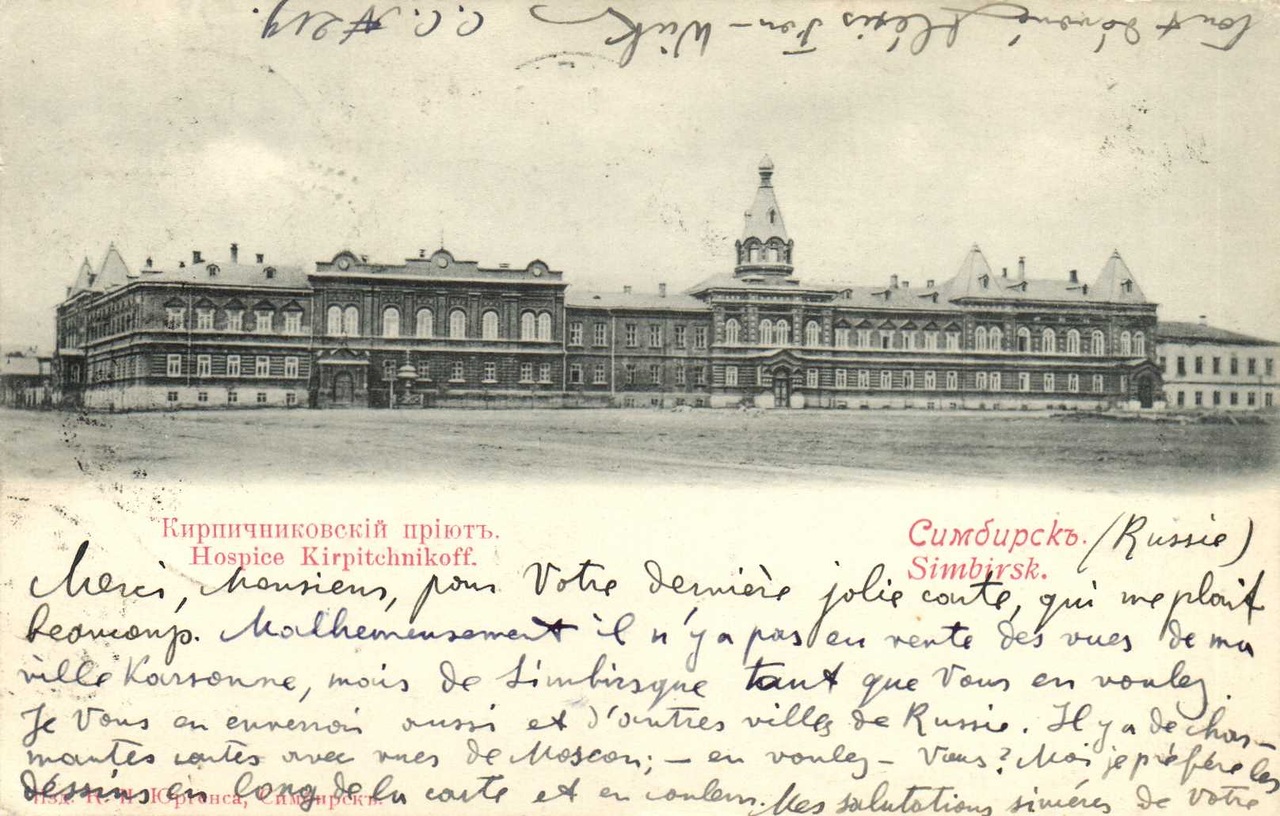 tout dévoué Alexis Von-Wick
C.C. № 219.
Кирпичниковскій пріютъ.
Hospice Kirpitchnikoff.
Симбирскъ. (Russie)
Simbirsk.
Merci, Monsieur, pour Votre dernière jolie carte, qui me plait
beaucoup. Malheureusement il n'y a pas en vente des vues de ma
ville Karsonne, mais de Simbirsque tant que Vous en voulez.
Je Vous en enverrai aussi et d'autres villes de Russie. Il y a de char-
mantes cartes avec vues de Moscou; – en voulez-Vous? Moi je préfère les
dessins en long de la carte et en couleur. Mes salutations sincères de Votre
Изд. Юргенса, Симбирскъ.